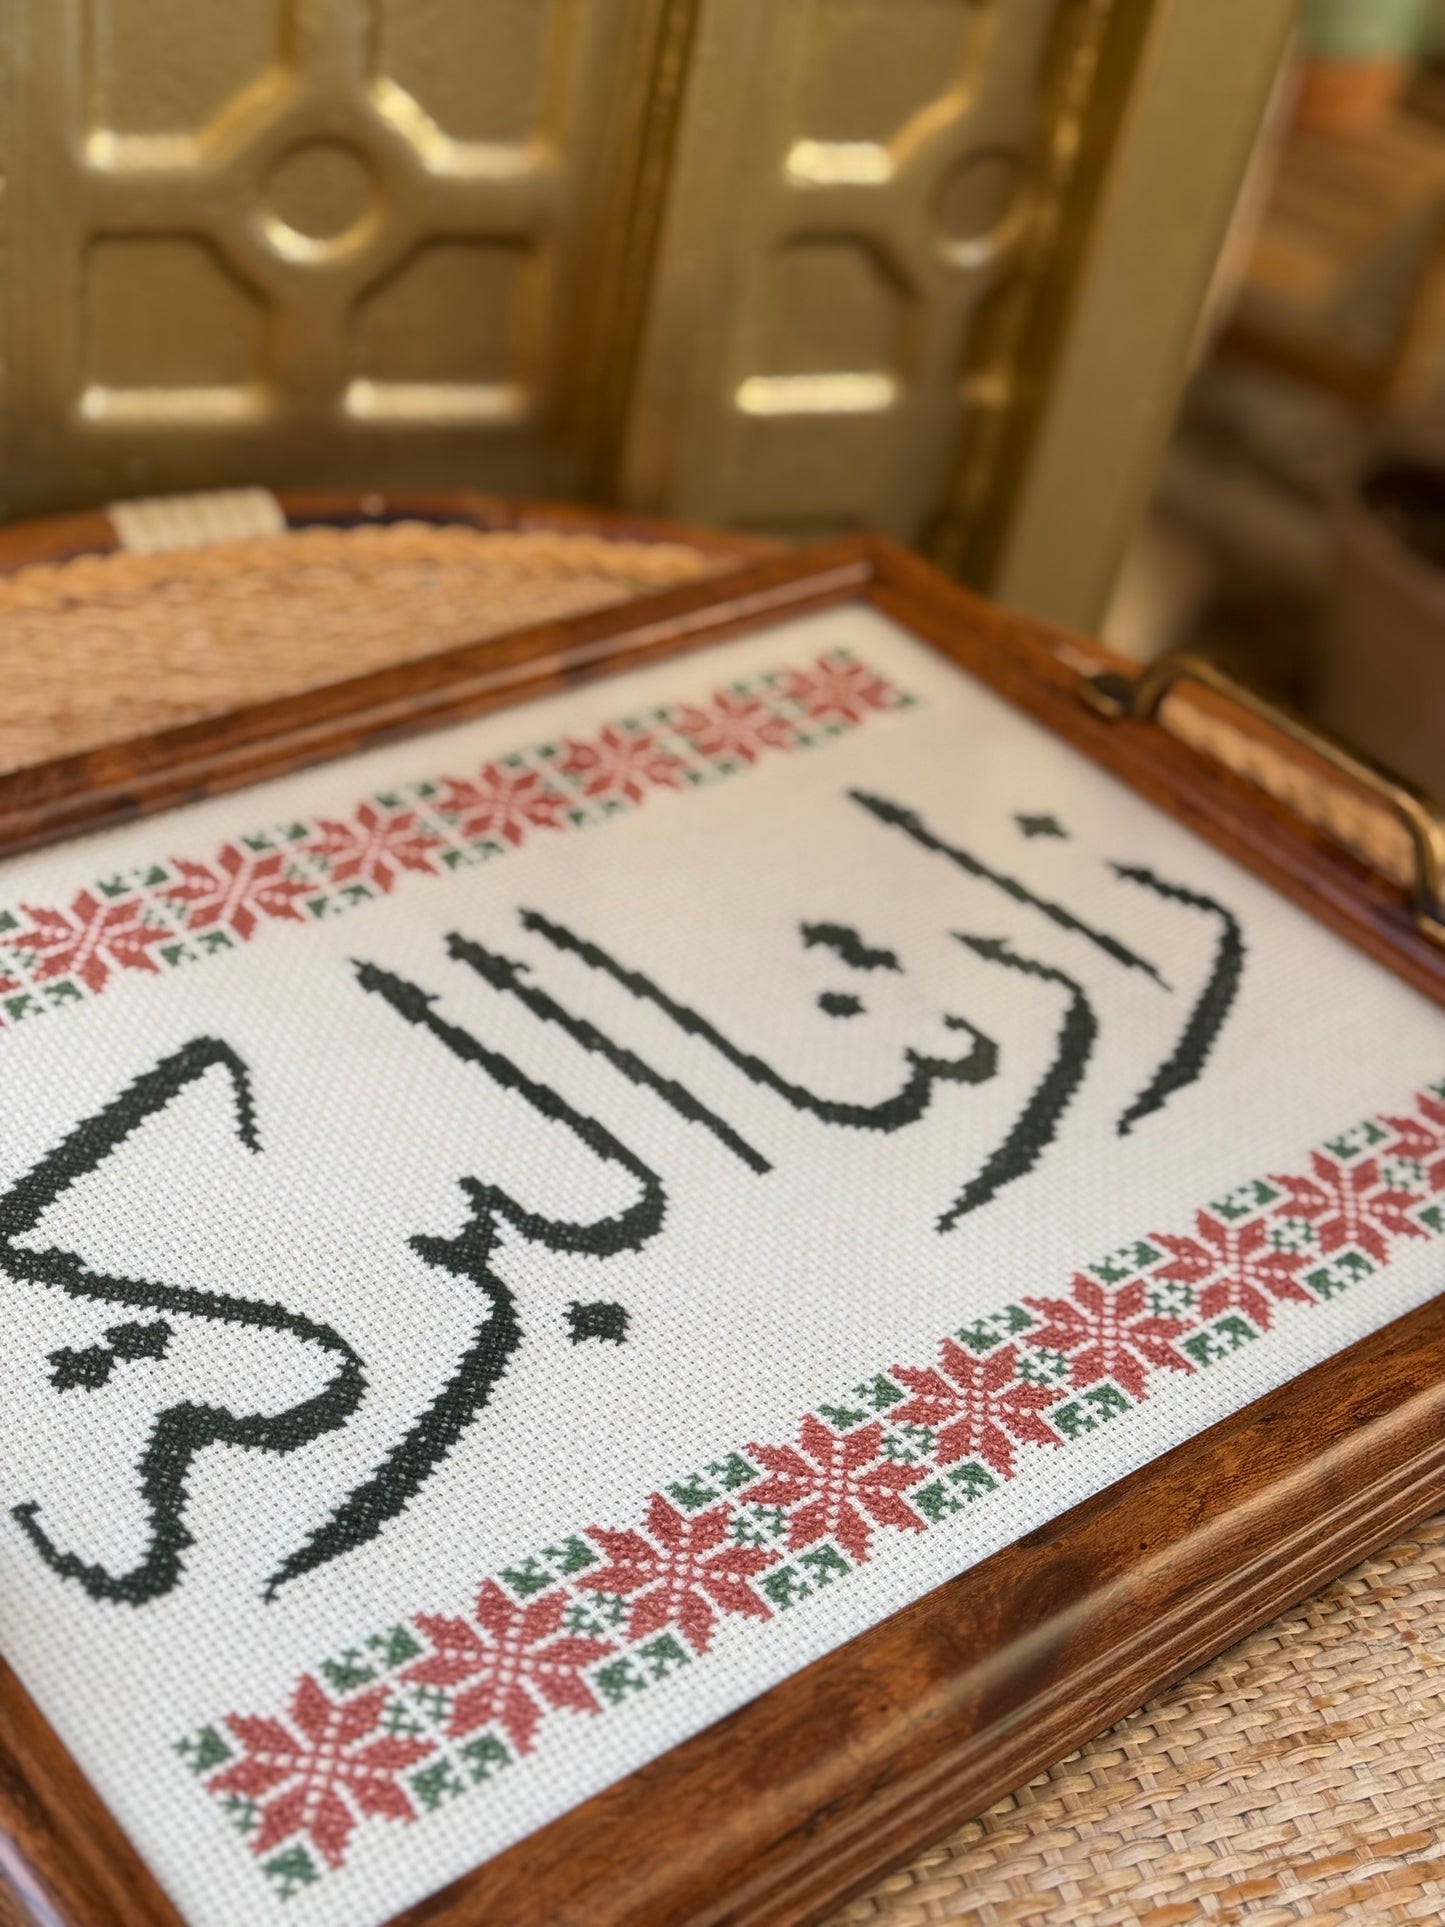 زارتنا البركة